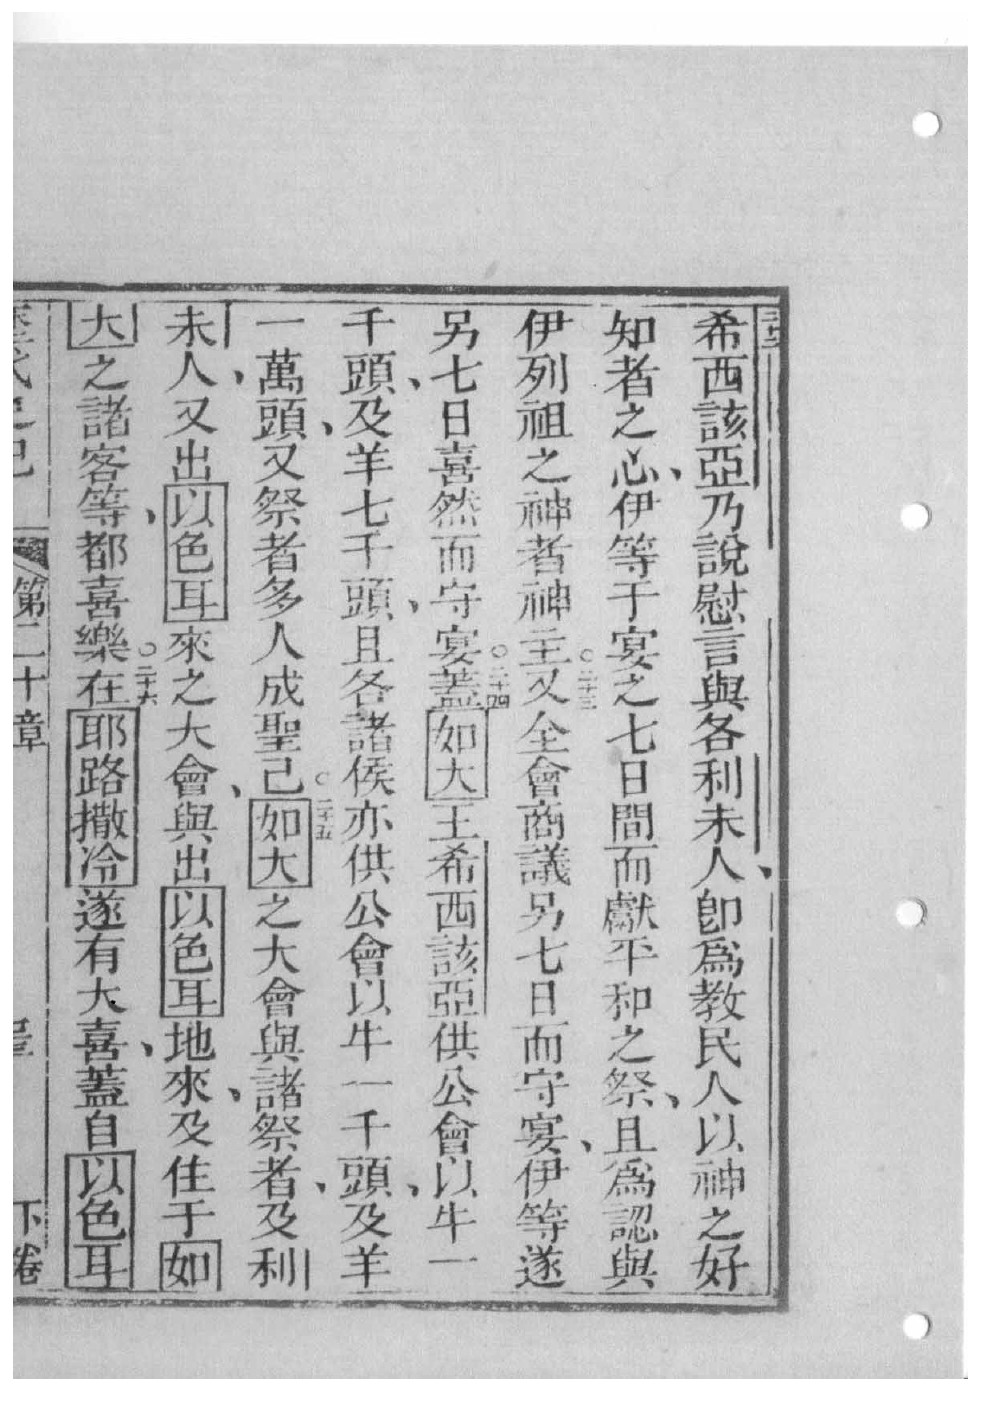 希西該亞乃說慰言與各利未人、卽爲教民人以神之好
知者之心、伊等于宴之七日間而獻平和之祭、且爲認與
伊列祖之神者神主○二十三又全會商議另七日而守宴、伊等遂
另七日喜然而守宴○二十四蓋如大王希西該亞供公會以牛一
千頭、及羊七千頭、且各諸侯亦供公會以牛一千頭、及羊
一萬頭、又祭者多人成聖己○二十五如大之大會與諸祭者、及利
未人、又出以色耳來之大會、與出以色耳地來、及住于如
大之諸客等、都喜樂○二十六在耶路撒冷遂有大喜、蓋自以色耳
第二十章
下卷